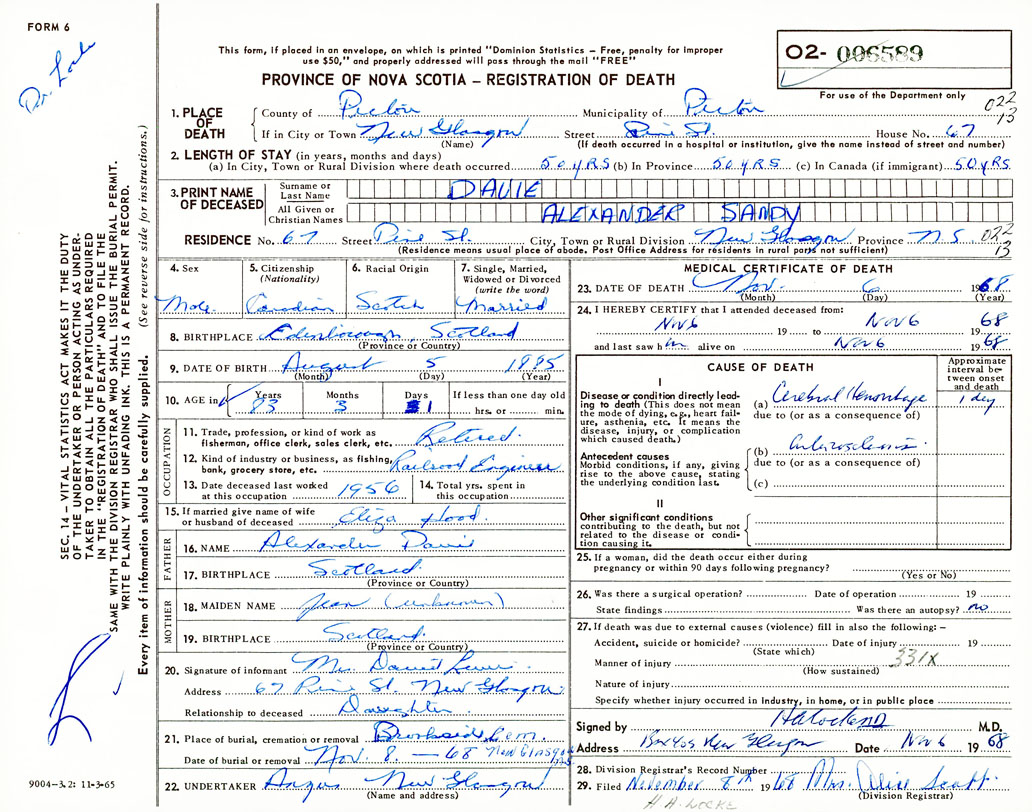 FORM 6
Dr. Locke
This form, if placed in an envelope, on which is printed "Dominion Statistics – Free, penalty for improper
use $50," and properly addressed will pass through the mail "FREE"
PROVINCE OF NOVA SCOTIA – REGISTRATION OF DEATH
O2- 006589
For use of the Department only
022
13
1. PLACE OF DEATH
County of Pictou Municipality of Pictou
If in City or Town New Glasgow Street Pine St. House No. 67
(Name) (If death occurred in a hospital or institution, give the name instead of street and number)
2. LENGTH OF STAY (in years, months and days)
(a) In City, Town or Rural Division where death occurred 50 yRS (b) In Province 50 yRS (c) In Canada (if immigrant) 50 yRS
3. PRINT NAME OF DECEASED
Surname or Last Name DAVIE
All Given or Christian Names ALEXANDER SANDY
RESIDENCE No. 67 Street Pine St. City, Town or Rural Division New Glasgow Province N S. 022
13
(Residence means usual place of abode. Post Office Address for residents in rural parts not sufficient)
4. Sex
Male
5. Citizenship
(Nationality)
Canadian
6. Racial Origin
Scotch
7. Single, Married,
Widowed or Divorced
(write the word)
Married
8. BIRTHPLACE Edenborough, Scotland
(Province or Country)
9. DATE OF BIRTH August 5 1885
(Month) (Day) (Year)
10. AGE in Years 83 Months 3 Days 1 If less than one day old
hrs. or min.
OCCUPATION
11. Trade, profession, or kind of work as
fisherman, office clerk, sales clerk, etc. Retired.
12. Kind of industry or business, as fishing,
bank, grocery store, etc. Railroad Engineer
13. Date deceased last worked
at this occupation 1956
14. Total yrs. spent in
this occupation
15. If married give name of wife
or husband of deceased Eliza Hood.
FATHER
16. NAME Alexander Davie
17. BIRTHPLACE Scotland
(Province or Country)
MOTHER
18. MAIDEN NAME Jean (unknown)
19. BIRTHPLACE Scotland.
(Province or Country)
20. Signature of informant Mrs. Daniel
Address 67 Pine St. New Glasgow.
Relationship to deceased Daughter
21. Place of burial, cremation or removal Brookside Cem.
Date of burial or removal Nov. 8. – 68 New Glasgow
22. UNDERTAKER Angus New Glasgow
(Name and address)
MEDICAL CERTIFICATE OF DEATH
23. DATE OF DEATH Nov. 6 1968
(Month) (Day) (Year)
24. I HEREBY CERTIFY that I attended deceased from:
Nov 6 19 to Nov 6 1968
and last saw him alive on Nov 6 1968
CAUSE OF DEATH
Approximate
interval be-
tween onset
and death
I
Disease or condition directly lead-
ing to death (This does not mean
the mode of dying, e.g., heart fail-
ure, asthenia, etc. It means the
disease, injury, or complication
which caused death.)
(a) Cerebral Hemorrhage 1 day
due to (or as a consequence of)
Antecedent causes
Morbid conditions, if any, giving
rise to the above cause, stating
the underlying condition last.
(b) Arteriosclerosis
due to (or as a consequence of)
(c)
II
Other significant conditions
contributing to the death, but not
related to the disease or condi-
tion causing it.
25. If a woman, did the death occur either during
pregnancy or within 90 days following pregnancy?
(Yes or No)
26. Was there a surgical operation? Date of operation 19
State findings Was there an autopsy? no
27. If death was due to external causes (violence) fill in also the following: –
Accident, suicide or homicide? Date of injury 19
(State which)
331X
Manner of injury
(How sustained)
Nature of injury
Specify whether injury occurred in Industry, in home, or in public place
Signed by HA Locke M.D.
Address Box 409 New Glasgow Date Nov 6 1968
28. Division Registrar's Record Number
29. Filed November 8th 1968 Mrs. Alice Scott.
(Division Registrar)
H. H. LOCKE
SEC. 14 – VITAL STATISTICS ACT MAKES IT THE DUTY
OF THE UNDERTAKER OR PERSON ACTING AS UNDER-
TAKER TO OBTAIN ALL THE PARTICULARS REQUIRED
IN THE "REGISTRATION OF DEATH" AND TO FILE THE
SAME WITH THE DIVISION REGISTRAR WHO SHALL ISSUE THE BURIAL PERMIT.
WRITE PLAINLY WITH UNFADING INK. THIS IS A PERMANENT RECORD.
Every item of information should be carefully supplied. (See reverse side for instructions.)
9004-3.2: 11-3-65